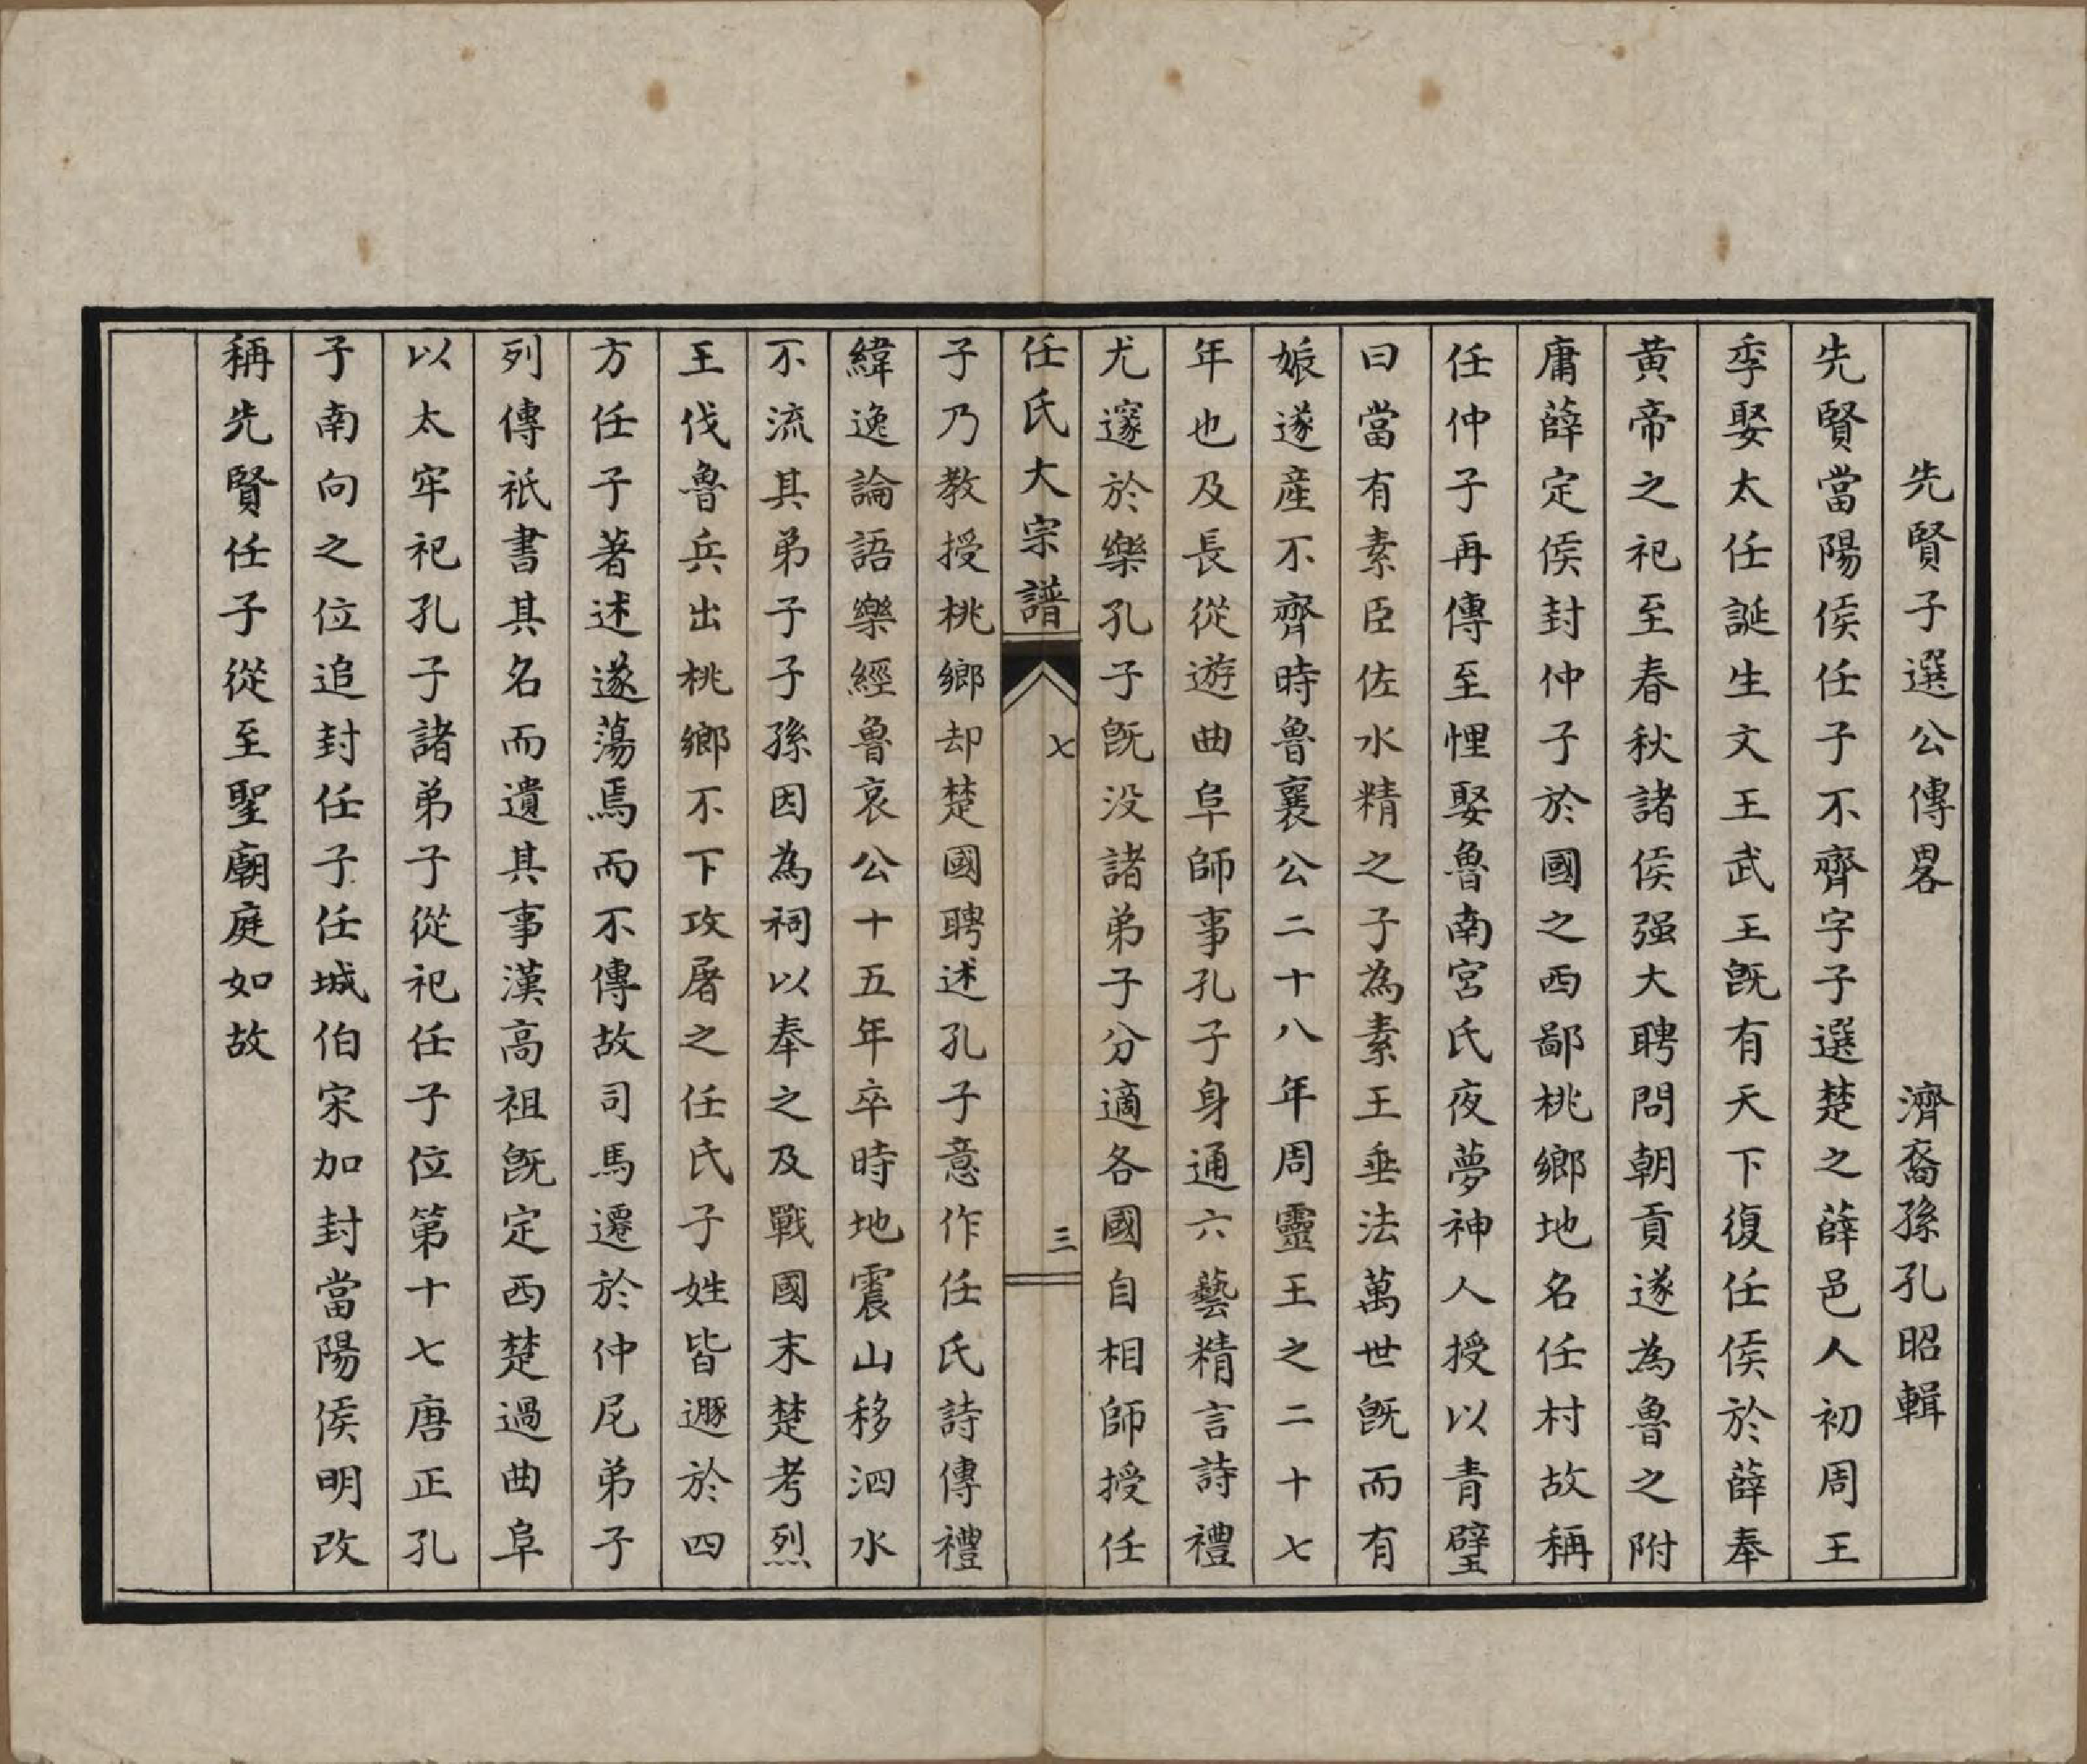 先賢子選公傳畧　濟裔孫孔昭輯
先賢當陽侯任子不齊字子選楚之薛邑人初周王
季娶太任誕生文王武王既有天下復任侯於薛奉
黃帝之祀至春秋諸侯强大聘問朝貢遂為魯之附
庸薛定侯封仲子於國之西鄙桃鄉地名任村故稱
任仲子再傳至悝娶魯南宮氏夜夢神人授以青璧
曰當有素臣佐水精之子為素王垂法萬世既而有
娠遂產不齊時魯襄公二十八年周靈王之二十七
年也及長從遊曲阜師事孔子身通六藝精言詩禮
尤邃於樂孔子既没諸弟子分適各國自相師授任
任氏大宗譜　七　三
子乃教授桃鄉却楚國聘述孔子意作任氏詩傳禮
緯逸論語樂經魯哀公十五年卒時地震山移泗水
不流其弟子子孫因為祠以奉之及戰國末楚考烈
王伐魯兵出桃鄉不下攻屠之任氏子姓皆遯於四
方任子著述遂蕩焉而不傳故司馬遷於仲尼弟子
列傳祇書其名而遺其事漢高祖既定西楚過曲阜
以太牢祀孔子諸弟子從祀任子位第十七唐正孔
子南向之位追封任子任城伯宋加封當陽侯明改
稱先賢任子從至聖廟庭如故